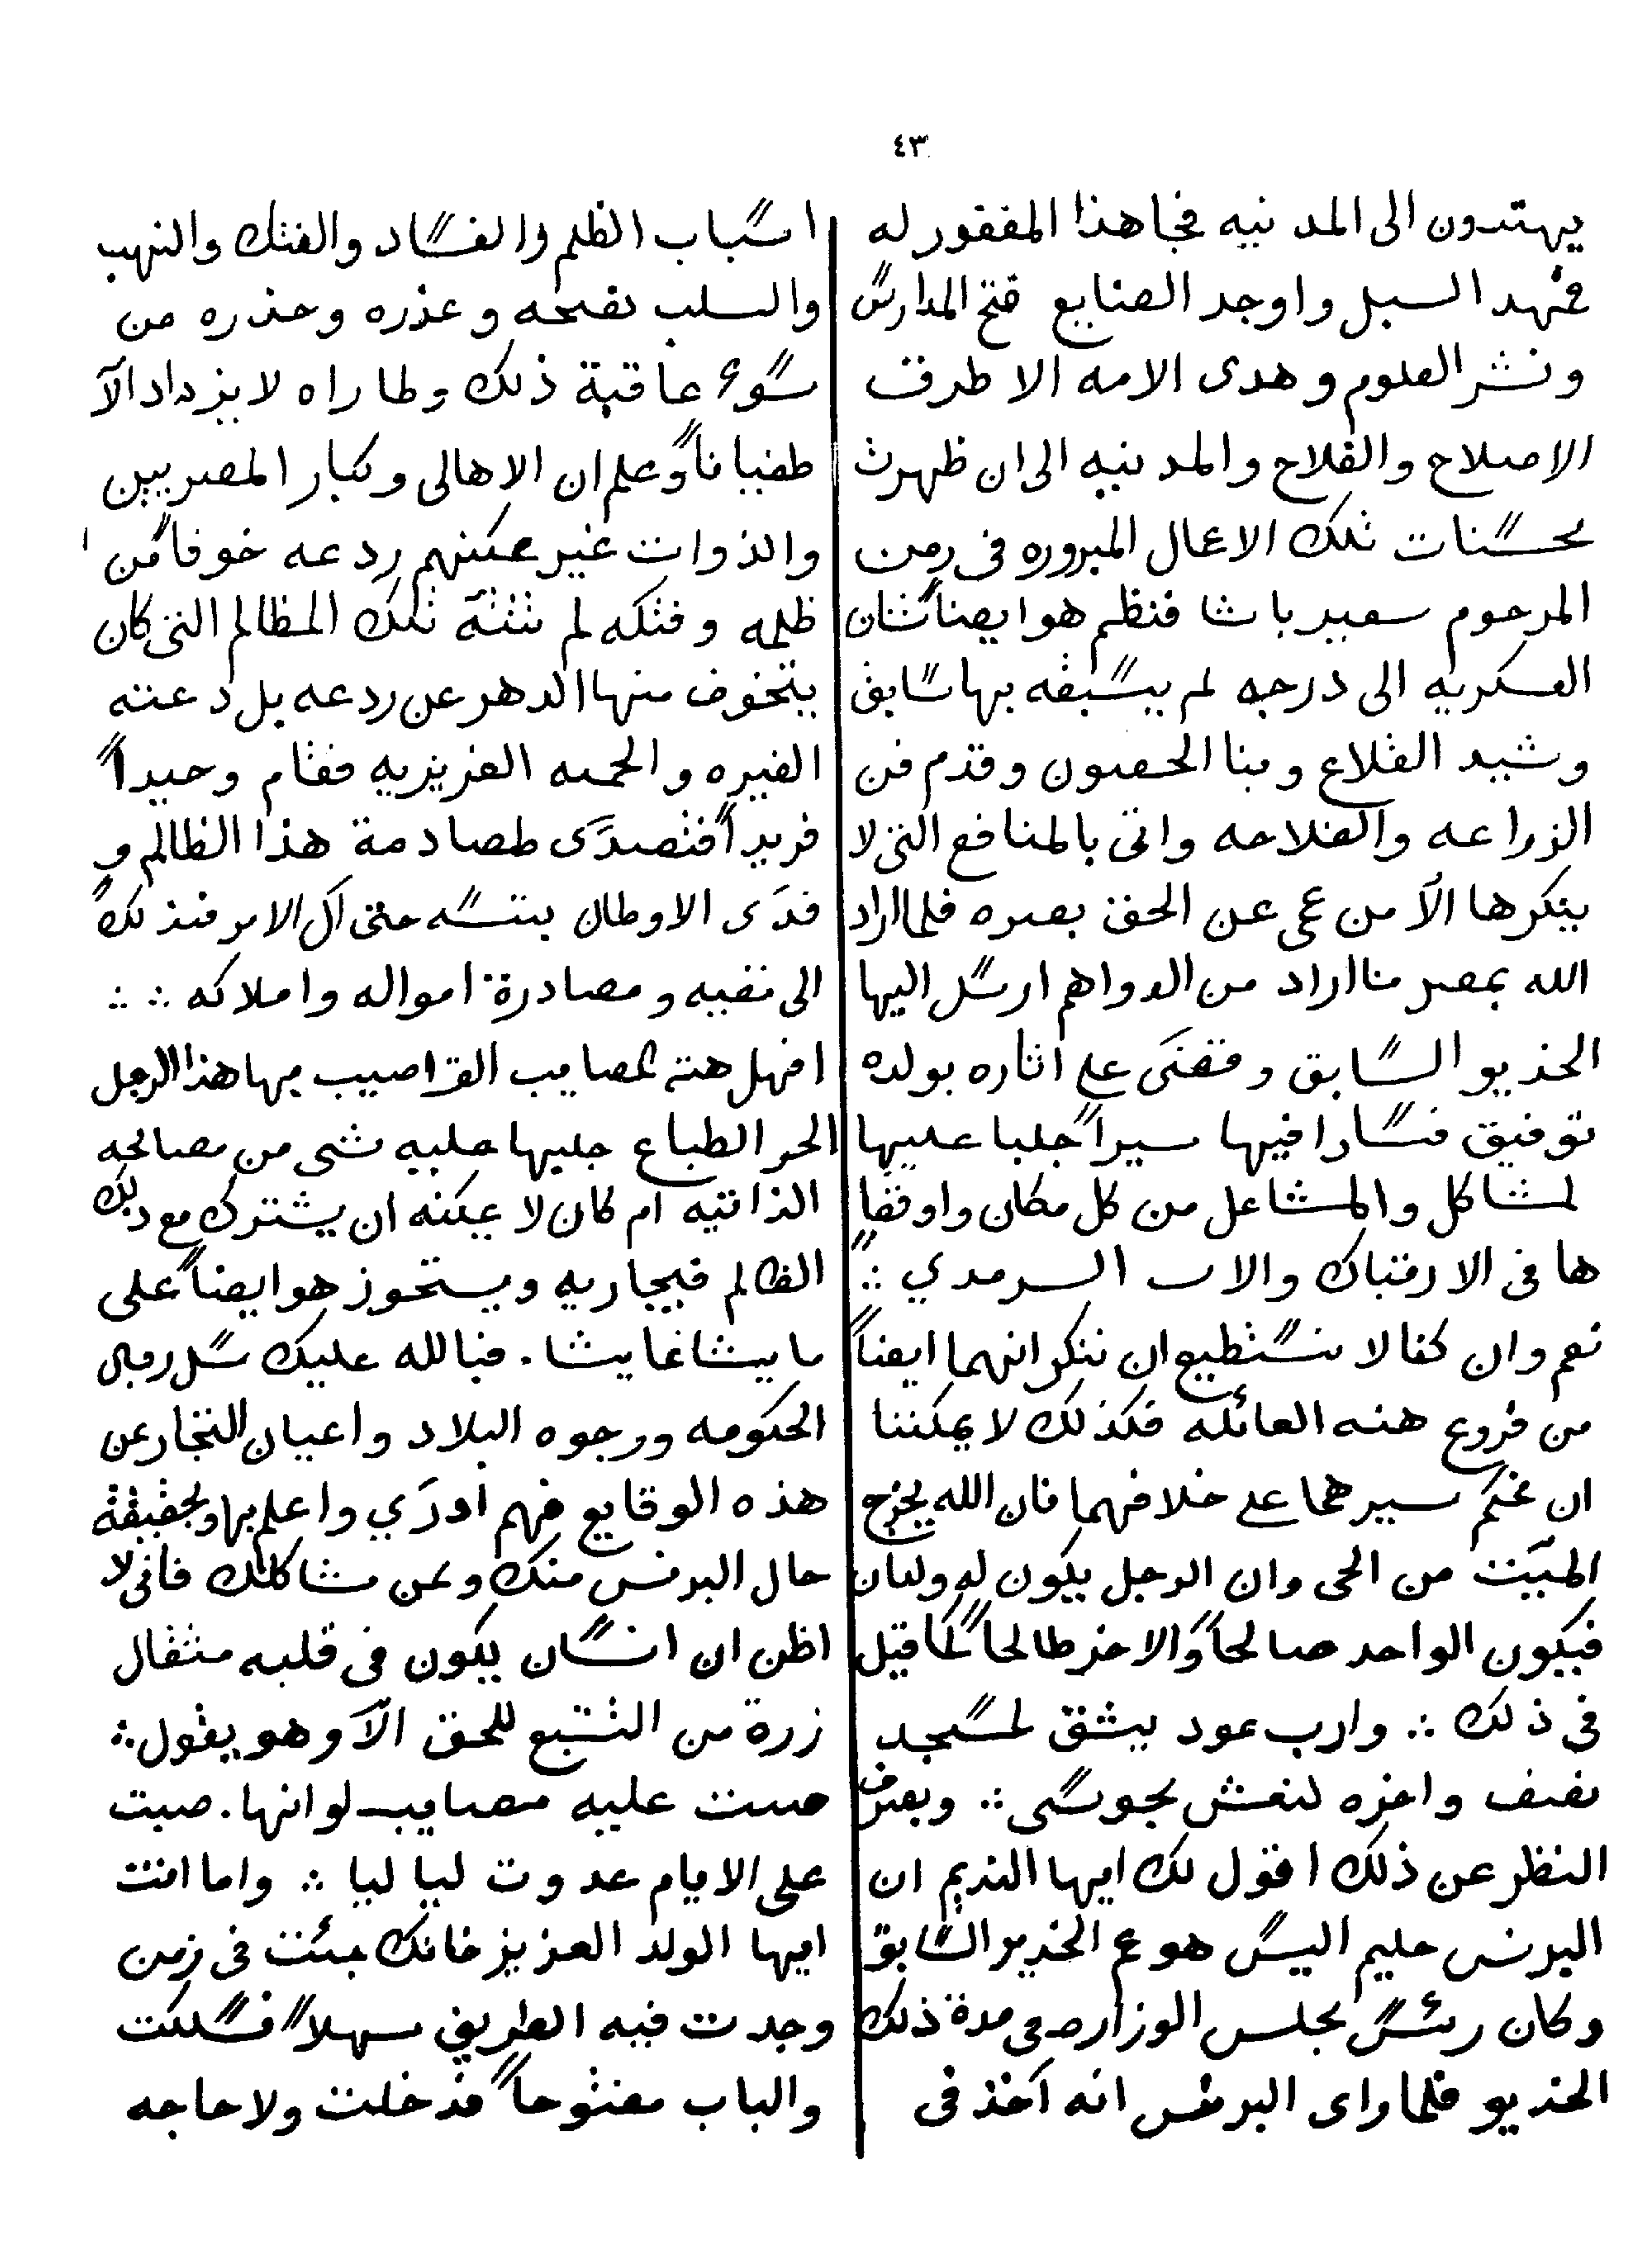 ٤٣
يهتدون الى المدنيه فجا هذا المغفور له
فمهد السبل واوجد الصنايع فتح المدارس
ونشر العلوم وهدى الامه الا طرق
الاصلاح والفلاح والمدنيه الى ان ظهرت
محسنات تلك الاعمال المبروره فى زمن
المرحوم سعيد باشا فنظم هو ايضاً شان
العسكريه الى درجه لم يسبقه بها سابق
وشيد القلاع وبنا الحصون وقدم فن
الزراعه والفلاحه واتى بالمنافع التى لا
ينكرها الاّ من عمى عن الحق بصره فلما اراد
الله بمصر ما اراد من الدواهم ارسل اليها
الخديو السابق وقفى على اثاره بولده
توفيق فسارا فيها سيراً جلبا عليها
لمشاكل والمشاعل من كل مكان واوقفا
ها فى الارتباك والا ب السرمدي ∴
نعم وان كنا لا نستطيع ان ننكر انهما ايضاً
من فروع هذه العائله فكذلك لا يمكننا
ان نحكم سيرهما على خلافهما فان الله يخرج
الميّت من الحى وان الرجل يكون له ولدان
فيكون الواحد صالحاً والاخر طالحاً كما قيل
فى ذلك ∴ وارب عود يشق لمسجد
نصف واخره لنعش مجوسى ∴ وبصرف
النظر عن ذلك اقول لك ايها النديم ان
البرنس حليم اليس هو عم الخديو السابق
وكان رئس مجلس الوزاره فى مدة ذلك
الخديو فلما راى البرنس انه آخذ فى
اسباب الظلم والفساد والفتك والنهب
والسلب نصحه وعذره وحذره من
سوء عاقبة ذلك ولما راه لا يزداد الاّ
طغياناً وعلم ان الاهالى وكبار المصريين
والذوات غير ممكنهم ردعه خوفاً من
ظلمه وفتكه لم تثنه تلك المظالم التى كان
يتخوف منها الدهر عن ردعه بل دعته
الغيره والحميه الغزيزيه فقام وحيداً
فريداً فتصدّى لمصادمة هذا الظالم و
فدى الاوطان بنفسه حتى آل الامر فى ذلك
الى نفيه ومصادرة امواله واملاكه ∴ ∴
افهل هذه المصايب التى اصيب بها هذا الرجل
الحر الطباع جلبها عليه شى من مصالحه
الذاتيه ام كان لا يمكنه ان يشترك مع ذلك
الظالم فيجاريه ويستحوز هو ايضاً على
ما يشا عما يشا . فبالله عليك سل رجال
الحكومه ووجوه البلاد واعيان التجار عن
هذه الوقايع فهم ادرَي واعلم بها وبحقيقة
حال البرنس منك وممن مشاكلك فانى لا
اظن ان انسان يكون فى قلبه مثقال
زرة من التشبع للحق الاّ وهو يقول ∴
صبت عليه مصايب لو انها . صبت
على الايام عدوت ليا ليا ∴ واما انت
ايها الولد العزيز فانك جئت فى زمن
وجدت فيه الطريق سهلاً فسلكت
والباب مفتوحاً فدخلت ولا حاجه